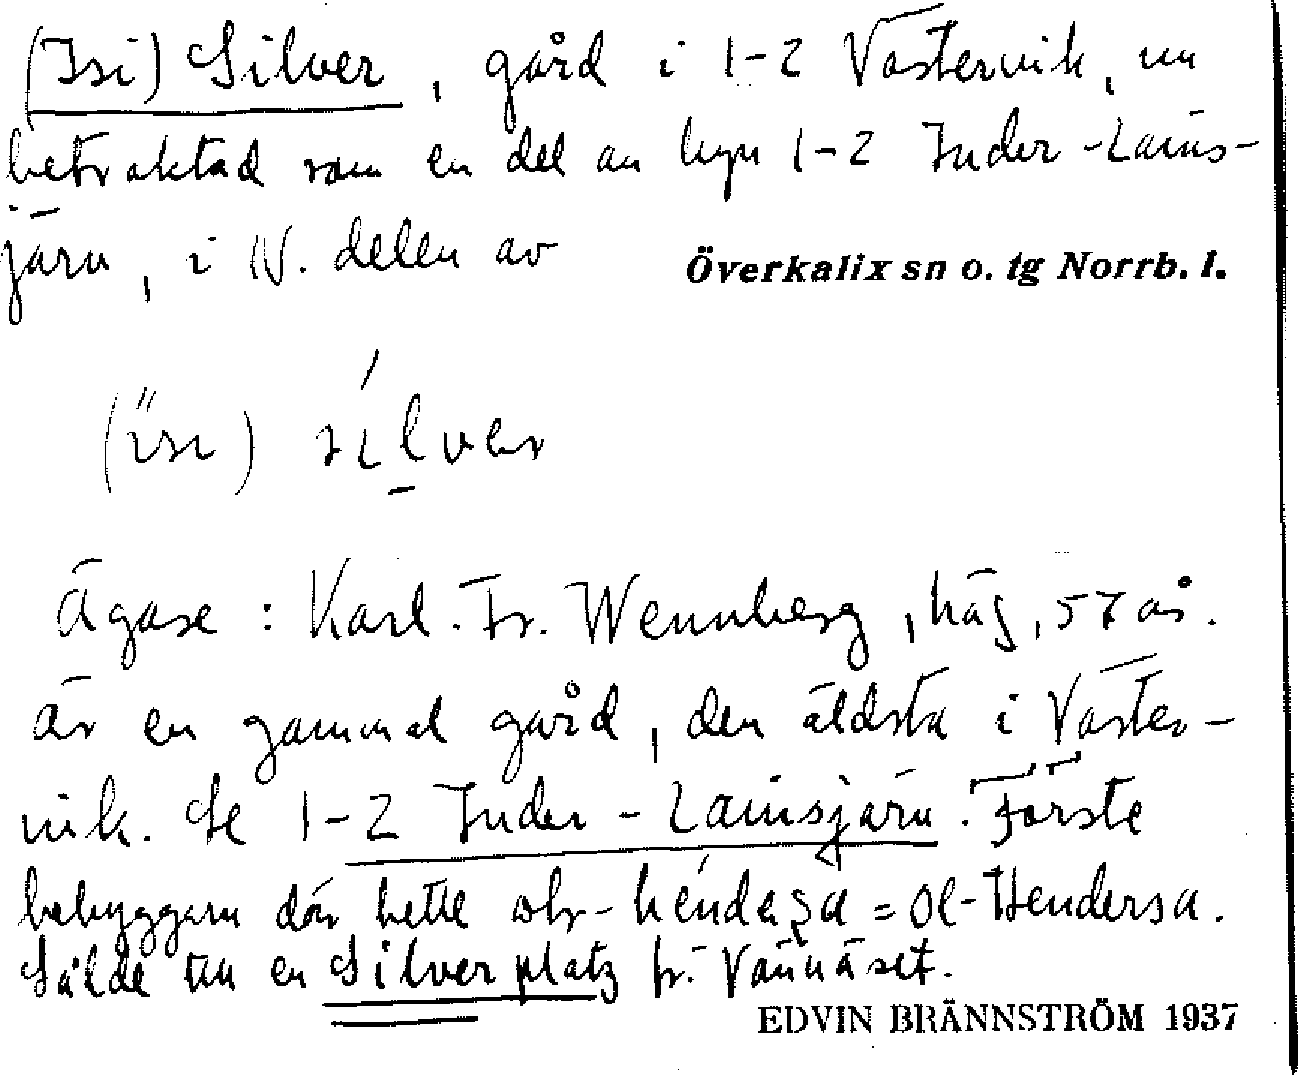 (Isi) Silver, gård i 1-2 Västervik, nu
betraktad som en del av byn 1-2 Inder-Lainis-
järn, i N. delen av
Överkalix sn o. tg Norrb. l.
silver
Ägare: Karl. Fr. Wennberg, häg, 57 år.
är en gammal gård, den äldsta i Väster-
vik. Se 1-2 Inder-Lainisjärn. Förste
bebyggarn där hette = Ol-Hendersa.
Sålde till en Silverplatz fr. Vännäset.
EDVIN BRÄNNSTRÖM 1937